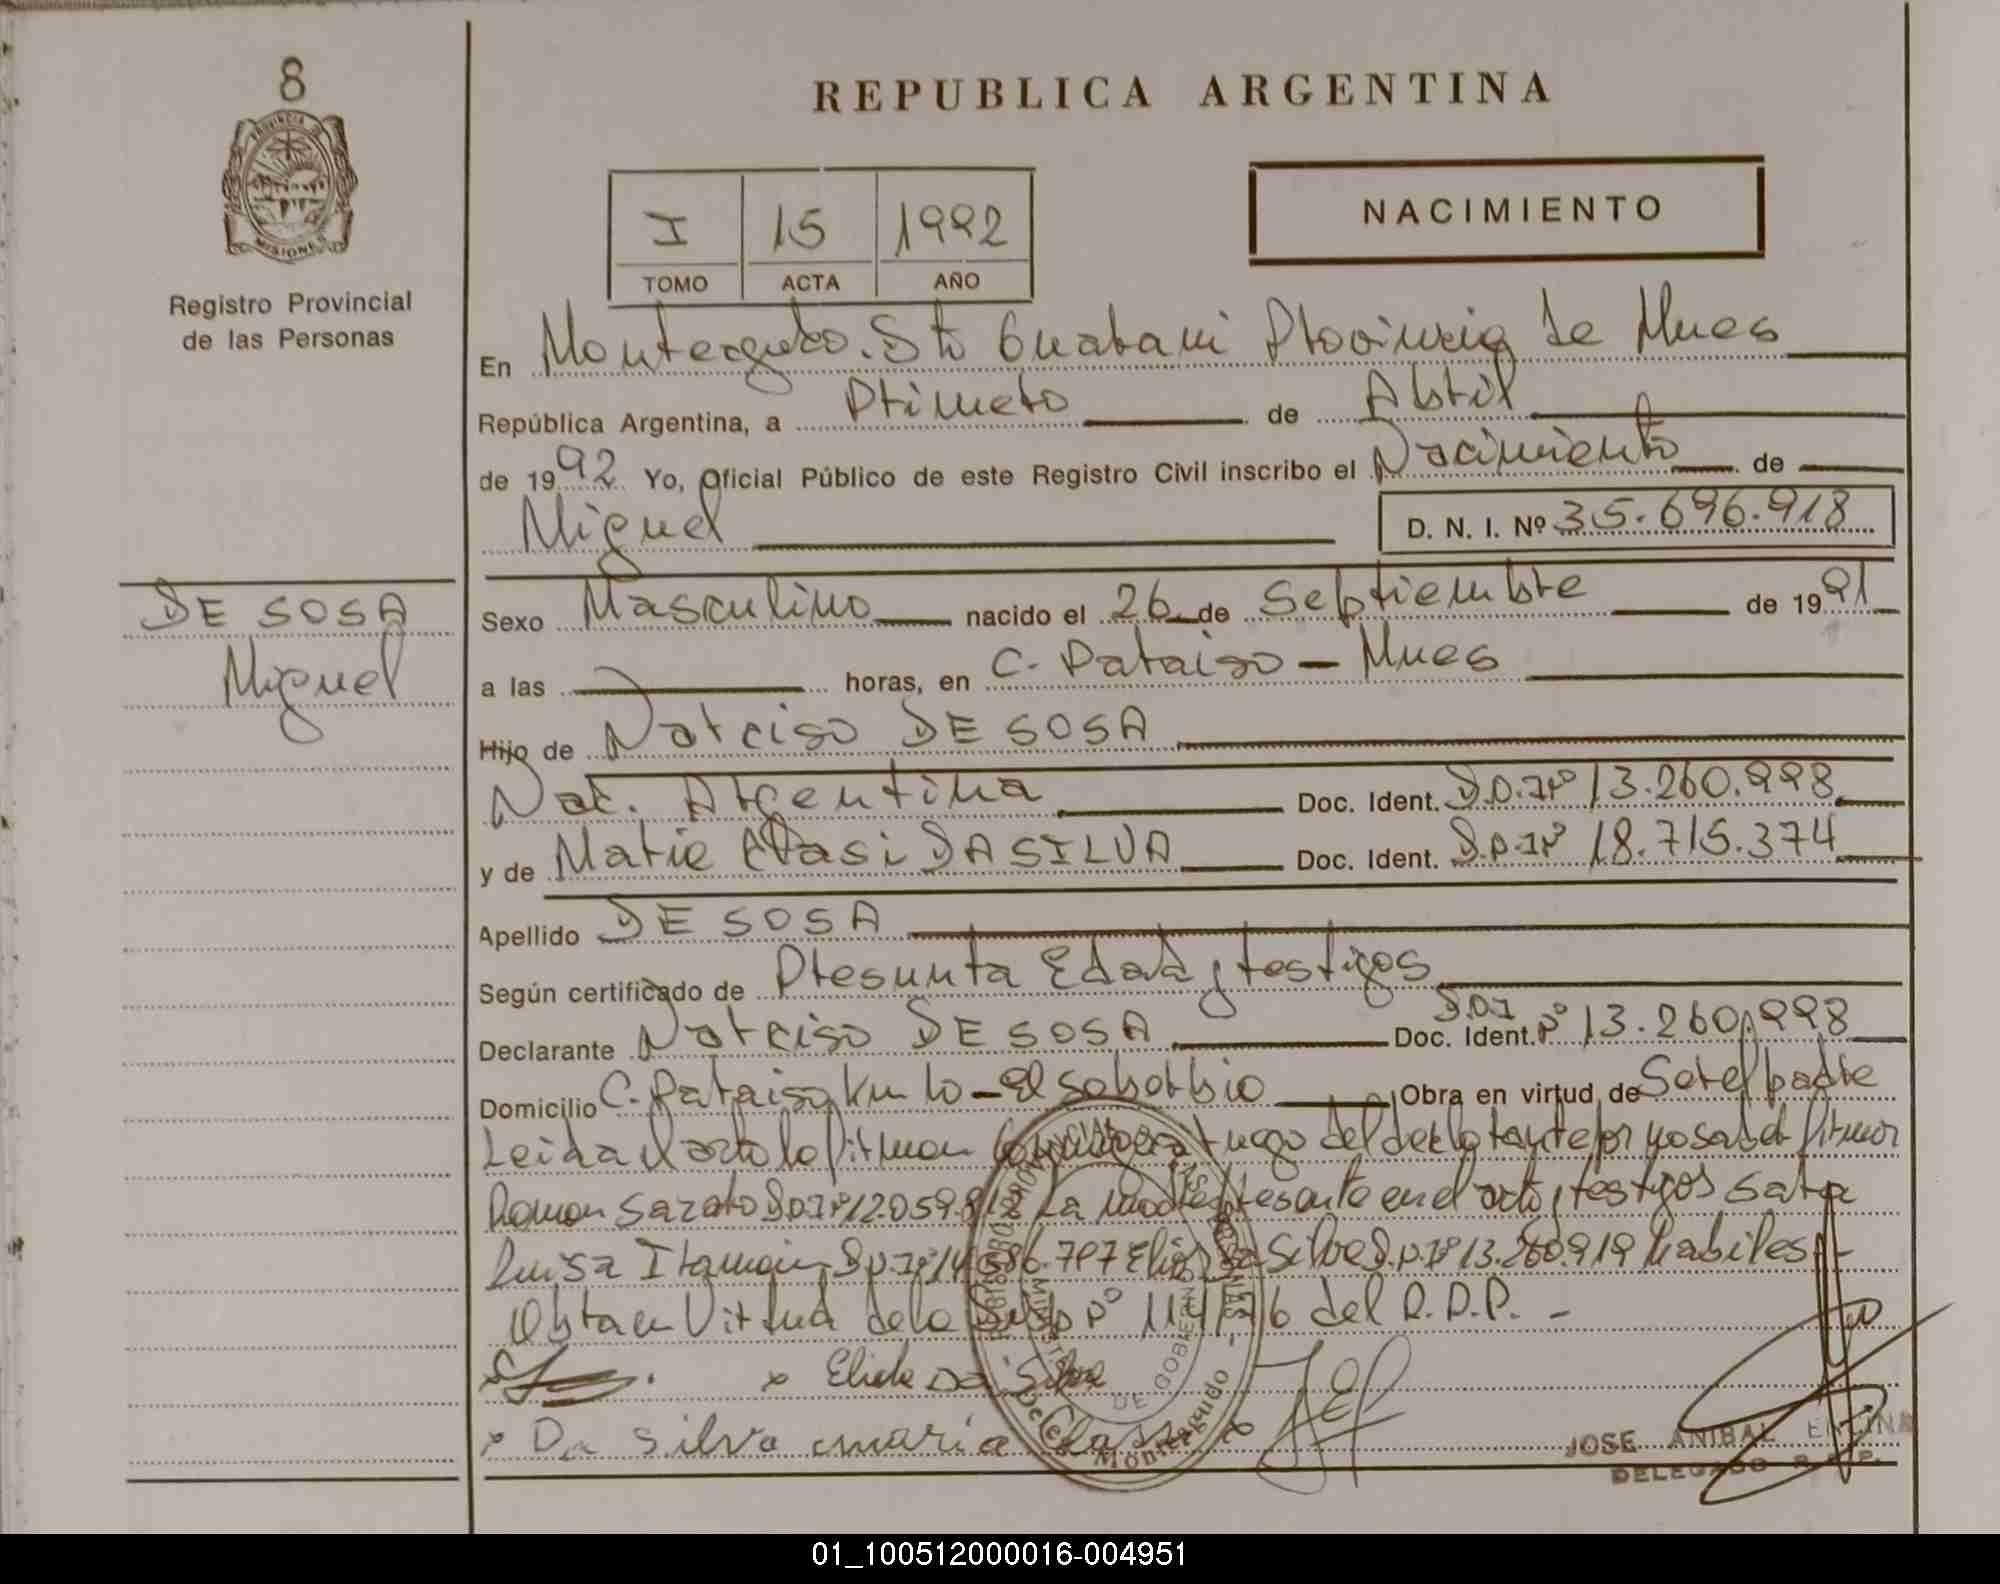 8
PROVINCIA DE
MISIONES
Registro Provincial
de las Personas
DE SOSA
Miguel
REPUBLICA ARGENTINA
I 15 1992
TOMO ACTA AÑO
NACIMIENTO
En Monteagudo. Sto Guarani Provincia de Mnes
República Argentina, a Primero de Abril
de 1992 Yo, Oficial Público de este Registro Civil inscribo el Nacimiento de
Miguel D. N. I. Nº 35.696.918
Sexo Masculino nacido el 26 de Septiembre de 1991
a las horas, en C. Paraiso - Mnes
Hijo de Narciso DE SOSA
Nac. Argentina Doc. Ident. D.N.I Nº 13.260.998
y de Maria DA SILVA Doc. Ident. D.N.I Nº 18.715.374
Apellido DE SOSA
Según certificado de Presunta Edad y testigos
Declarante Narciso DE SOSA Doc. Ident. D.N.I Nº 13.260.998
Domicilio C. Paraiso Km 10 - El Soberbio Obra en virtud de Ser el padre
Leida el acta la firman conmigo a ruego del declarante por no saber firmar
Ramon D.N.I Nº 12.059.812 La madre presente en el acto y testigos Sara
Luisa D.N.I Nº 14.686.797 Da Silva D.N.I Nº 13.260.919 habiles
Obra en Virtud de la Disp Nº 114/76 del R.P.P. -
x Da Silva
x Da Silva maria
REGISTRO PROVINCIAL DE LAS PERSONAS
MINISTERIO DE GOBIERNO
Deleg. Monteagudo
JOSE ANIBAL
DELEGADO R.P.P.
01_100512000016-004951